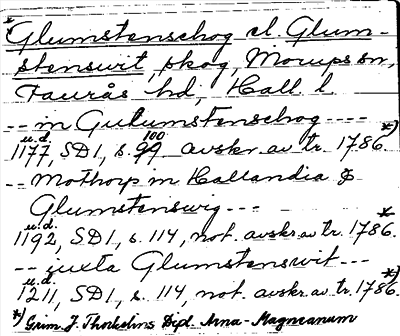 *) Glumstenschog el. Glum-
stenswit, skog, Morups sn,
Faurås hd, Hall. l.
-- in Gulumstenschog ----
u.d. 100 *)
1177, SD1, s. 99 avskr. av tr. 1786.
-- Mothorp in Hallandia &
Glumstenswig ---
u.d. *)
1192, SD1, s. 114, not. avskr. av tr. 1786.
-- juxta Glumstenswit ---
u.d. *)
1211, SD1, s. 114, not. avskr. av tr. 1786.
*) Grim. J. Thorkelins Dipl. Arna-Magnæanum